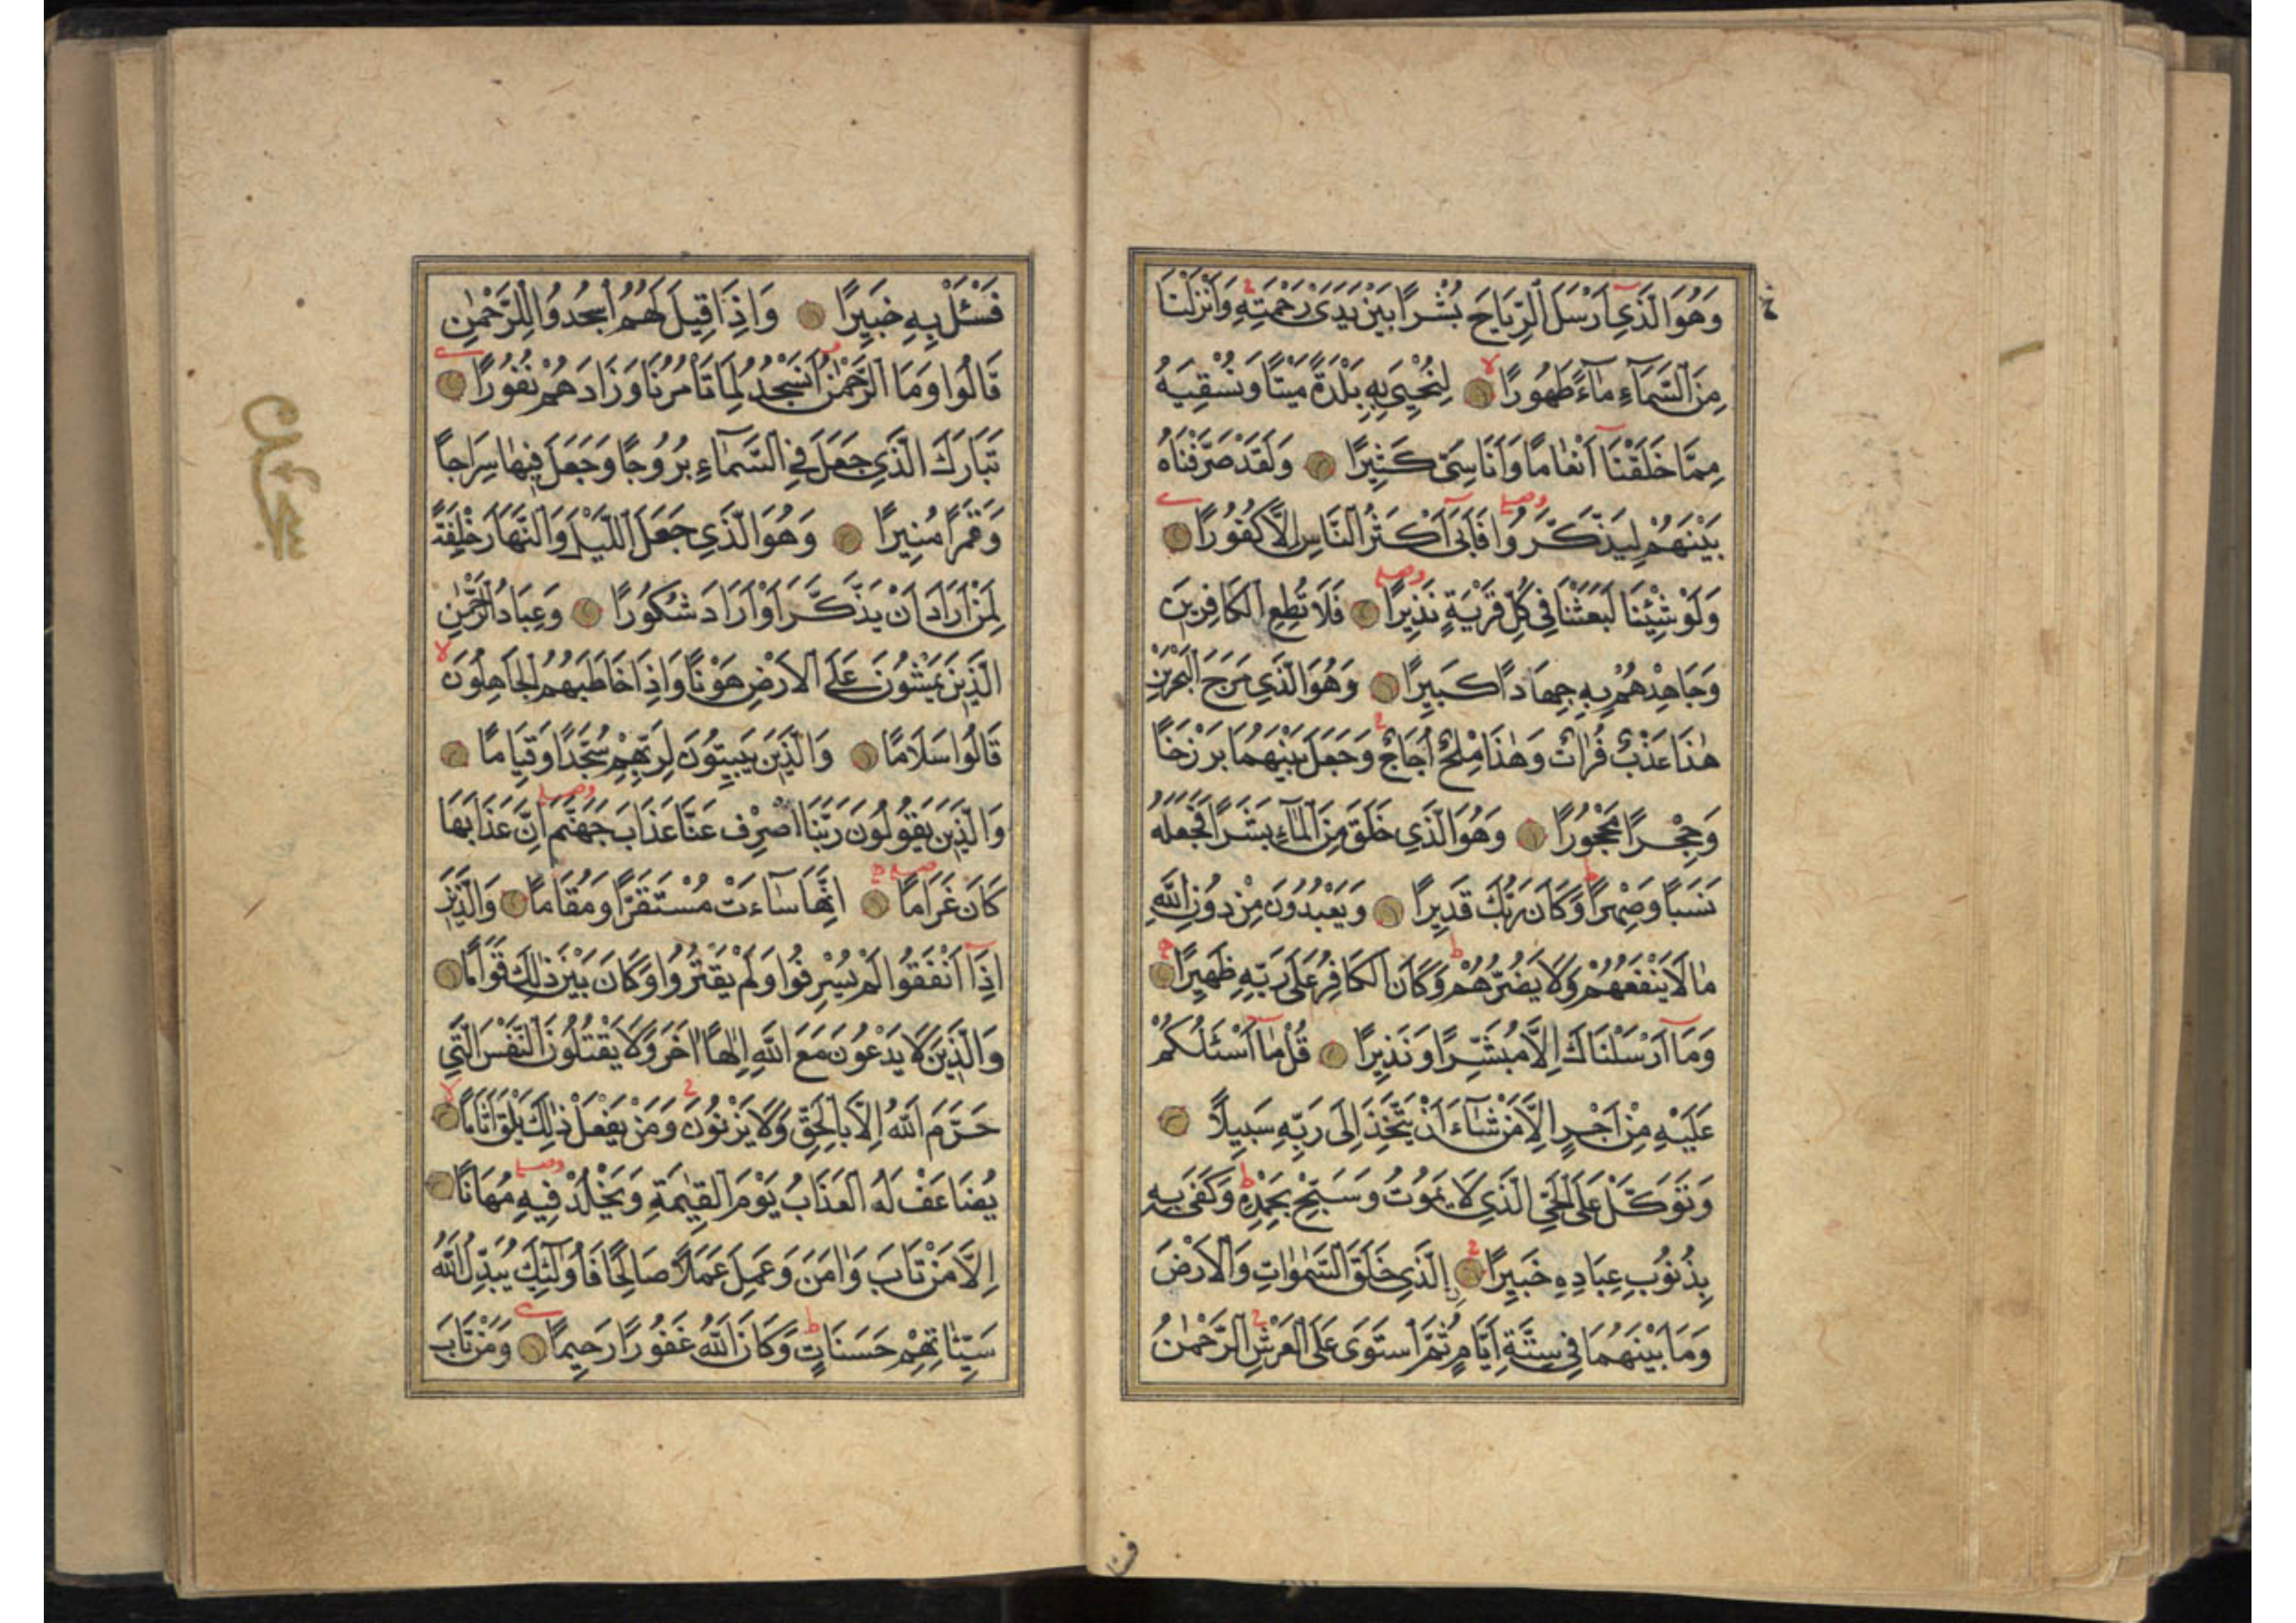 وَهُوَ الَّذِي أَرْسَلَ الرِّيَاحَ بُشْرًا بَيْنَ يَدَىْ رَحْمَتِهِ وَاَنْزَلْنَا
مِنَ السَّمَاءِ مَاءً طَهُورًا لِنُحْيِىَ بِهِ بَلْدَةً مَيْتًا وَنُسْقِيَهُ
مِمَّا خَلَقْنَا اَنْعَامًا وَاَنَاسِىَّ كَثِيرًا وَلَقَدْ صَرَّفْنَاهُ
بَيْنَهُمْ لِيَذَّكَّرُوا فَاَبَى اَكْثَرُ النَّاسِ اِلَّا كُفُورًا
وَلَوْ شِئْنَا لَبَعَثْنَا فِى كُلِّ قَرْيَةٍ نَذِيرًا فَلَا تُطِعِ الْكَافِرِينَ
وَجَاهِدْهُمْ بِهِ جِهَادًا كَبِيرًا وَهُوَ الَّذِى مَرَجَ الْبَحْرَيْنِ
هٰذَا عَذْبٌ فُرَاتٌ وَهٰذَا مِلْحٌ اُجَاجٌ وَجَعَلَ بَيْنَهُمَا بَرْزَخًا
وَحِجْرًا مَحْجُورًا وَهُوَ الَّذِى خَلَقَ مِنَ الْمَاءِ بَشَرًا فَجَعَلَهُ
نَسَبًا وَصِهْرًا وَكَانَ رَبُّكَ قَدِيرًا وَيَعْبُدُونَ مِنْ دُونِ اللّٰهِ
مَا لَا يَنْفَعُهُمْ وَلَا يَضُرُّهُمْ وَكَانَ الْكَافِرُ عَلَى رَبِّهِ ظَهِيرًا
وَمَا اَرْسَلْنَاكَ اِلَّا مُبَشِّرًا وَنَذِيرًا قُلْ مَا اَسْئَلُكُمْ
عَلَيْهِ مِنْ اَجْرٍ اِلَّا مَنْ شَاءَ اَنْ يَتَّخِذَ اِلَى رَبِّهِ سَبِيلًا
وَتَوَكَّلْ عَلَى الْحَىِّ الَّذِى لَا يَمُوتُ وَسَبِّحْ بِحَمْدِهِ وَكَفَى بِهِ
بِذُنُوبِ عِبَادِهِ خَبِيرًا اِلَّذِى خَلَقَ السَّمٰوَاتِ وَالْاَرْضَ
وَمَا بَيْنَهُمَا فِى سِتَّةِ اَيَّامٍ ثُمَّ اسْتَوَى عَلَى الْعَرْشِ الرَّحْمٰنُ
فَسْئَلْ بِهِ خَبِيرًا وَاِذَا قِيلَ لَهُمُ اسْجُدُوا لِلرَّحْمٰنِ
قَالُوا وَمَا الرَّحْمٰنُ اَنَسْجُدُ لِمَا تَاْمُرُنَا وَزَادَهُمْ نُفُورًا
تَبَارَكَ الَّذِى جَعَلَ فِى السَّمَاءِ بُرُوجًا وَجَعَلَ فِيهَا سِرَاجًا
وَقَمَرًا مُنِيرًا وَهُوَ الَّذِى جَعَلَ اللَّيْلَ وَالنَّهَارَ خِلْفَةً
لِمَنْ اَرَادَ اَنْ يَذَّكَّرَ اَوْ اَرَادَ شُكُورًا وَعِبَادُ الرَّحْمٰنِ
الَّذِينَ يَمْشُونَ عَلَى الْاَرْضِ هَوْنًا وَاِذَا خَاطَبَهُمُ الْجَاهِلُونَ
قَالُوا سَلَامًا وَالَّذِينَ يَبِيتُونَ لِرَبِّهِمْ سُجَّدًا وَقِيَامًا
وَالَّذِينَ يَقُولُونَ رَبَّنَا اصْرِفْ عَنَّا عَذَابَ جَهَنَّمَ اِنَّ عَذَابَهَا
كَانَ غَرَامًا اِنَّهَا سَاءَتْ مُسْتَقَرًّا وَمُقَامًا وَالَّذِينَ
اِذَا اَنْفَقُوا لَمْ يُسْرِفُوا وَلَمْ يَقْتُرُوا وَكَانَ بَيْنَ ذٰلِكَ قَوَامًا
وَالَّذِينَ لَا يَدْعُونَ مَعَ اللّٰهِ اِلٰهًا اٰخَرَ وَلَا يَقْتُلُونَ النَّفْسَ الَّتِى
حَرَّمَ اللّٰهُ اِلَّا بِالْحَقِّ وَلَا يَزْنُونَ وَمَنْ يَفْعَلْ ذٰلِكَ يَلْقَ اَثَامًا
يُضَاعَفْ لَهُ الْعَذَابُ يَوْمَ الْقِيٰمَةِ وَيَخْلُدْ فِيهِ مُهَانًا
اِلَّا مَنْ تَابَ وَاٰمَنَ وَعَمِلَ عَمَلًا صَالِحًا فَاُولٰئِكَ يُبَدِّلُ اللّٰهُ
سَيِّئَاتِهِمْ حَسَنَاتٍ وَكَانَ اللّٰهُ غَفُورًا رَحِيمًا وَمَنْ تَابَ